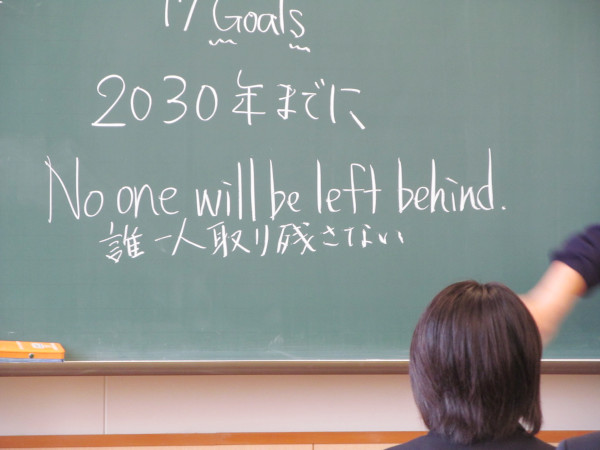 17 Goals
2030年までに、
No one will be left behind.
誰一人取り残さない